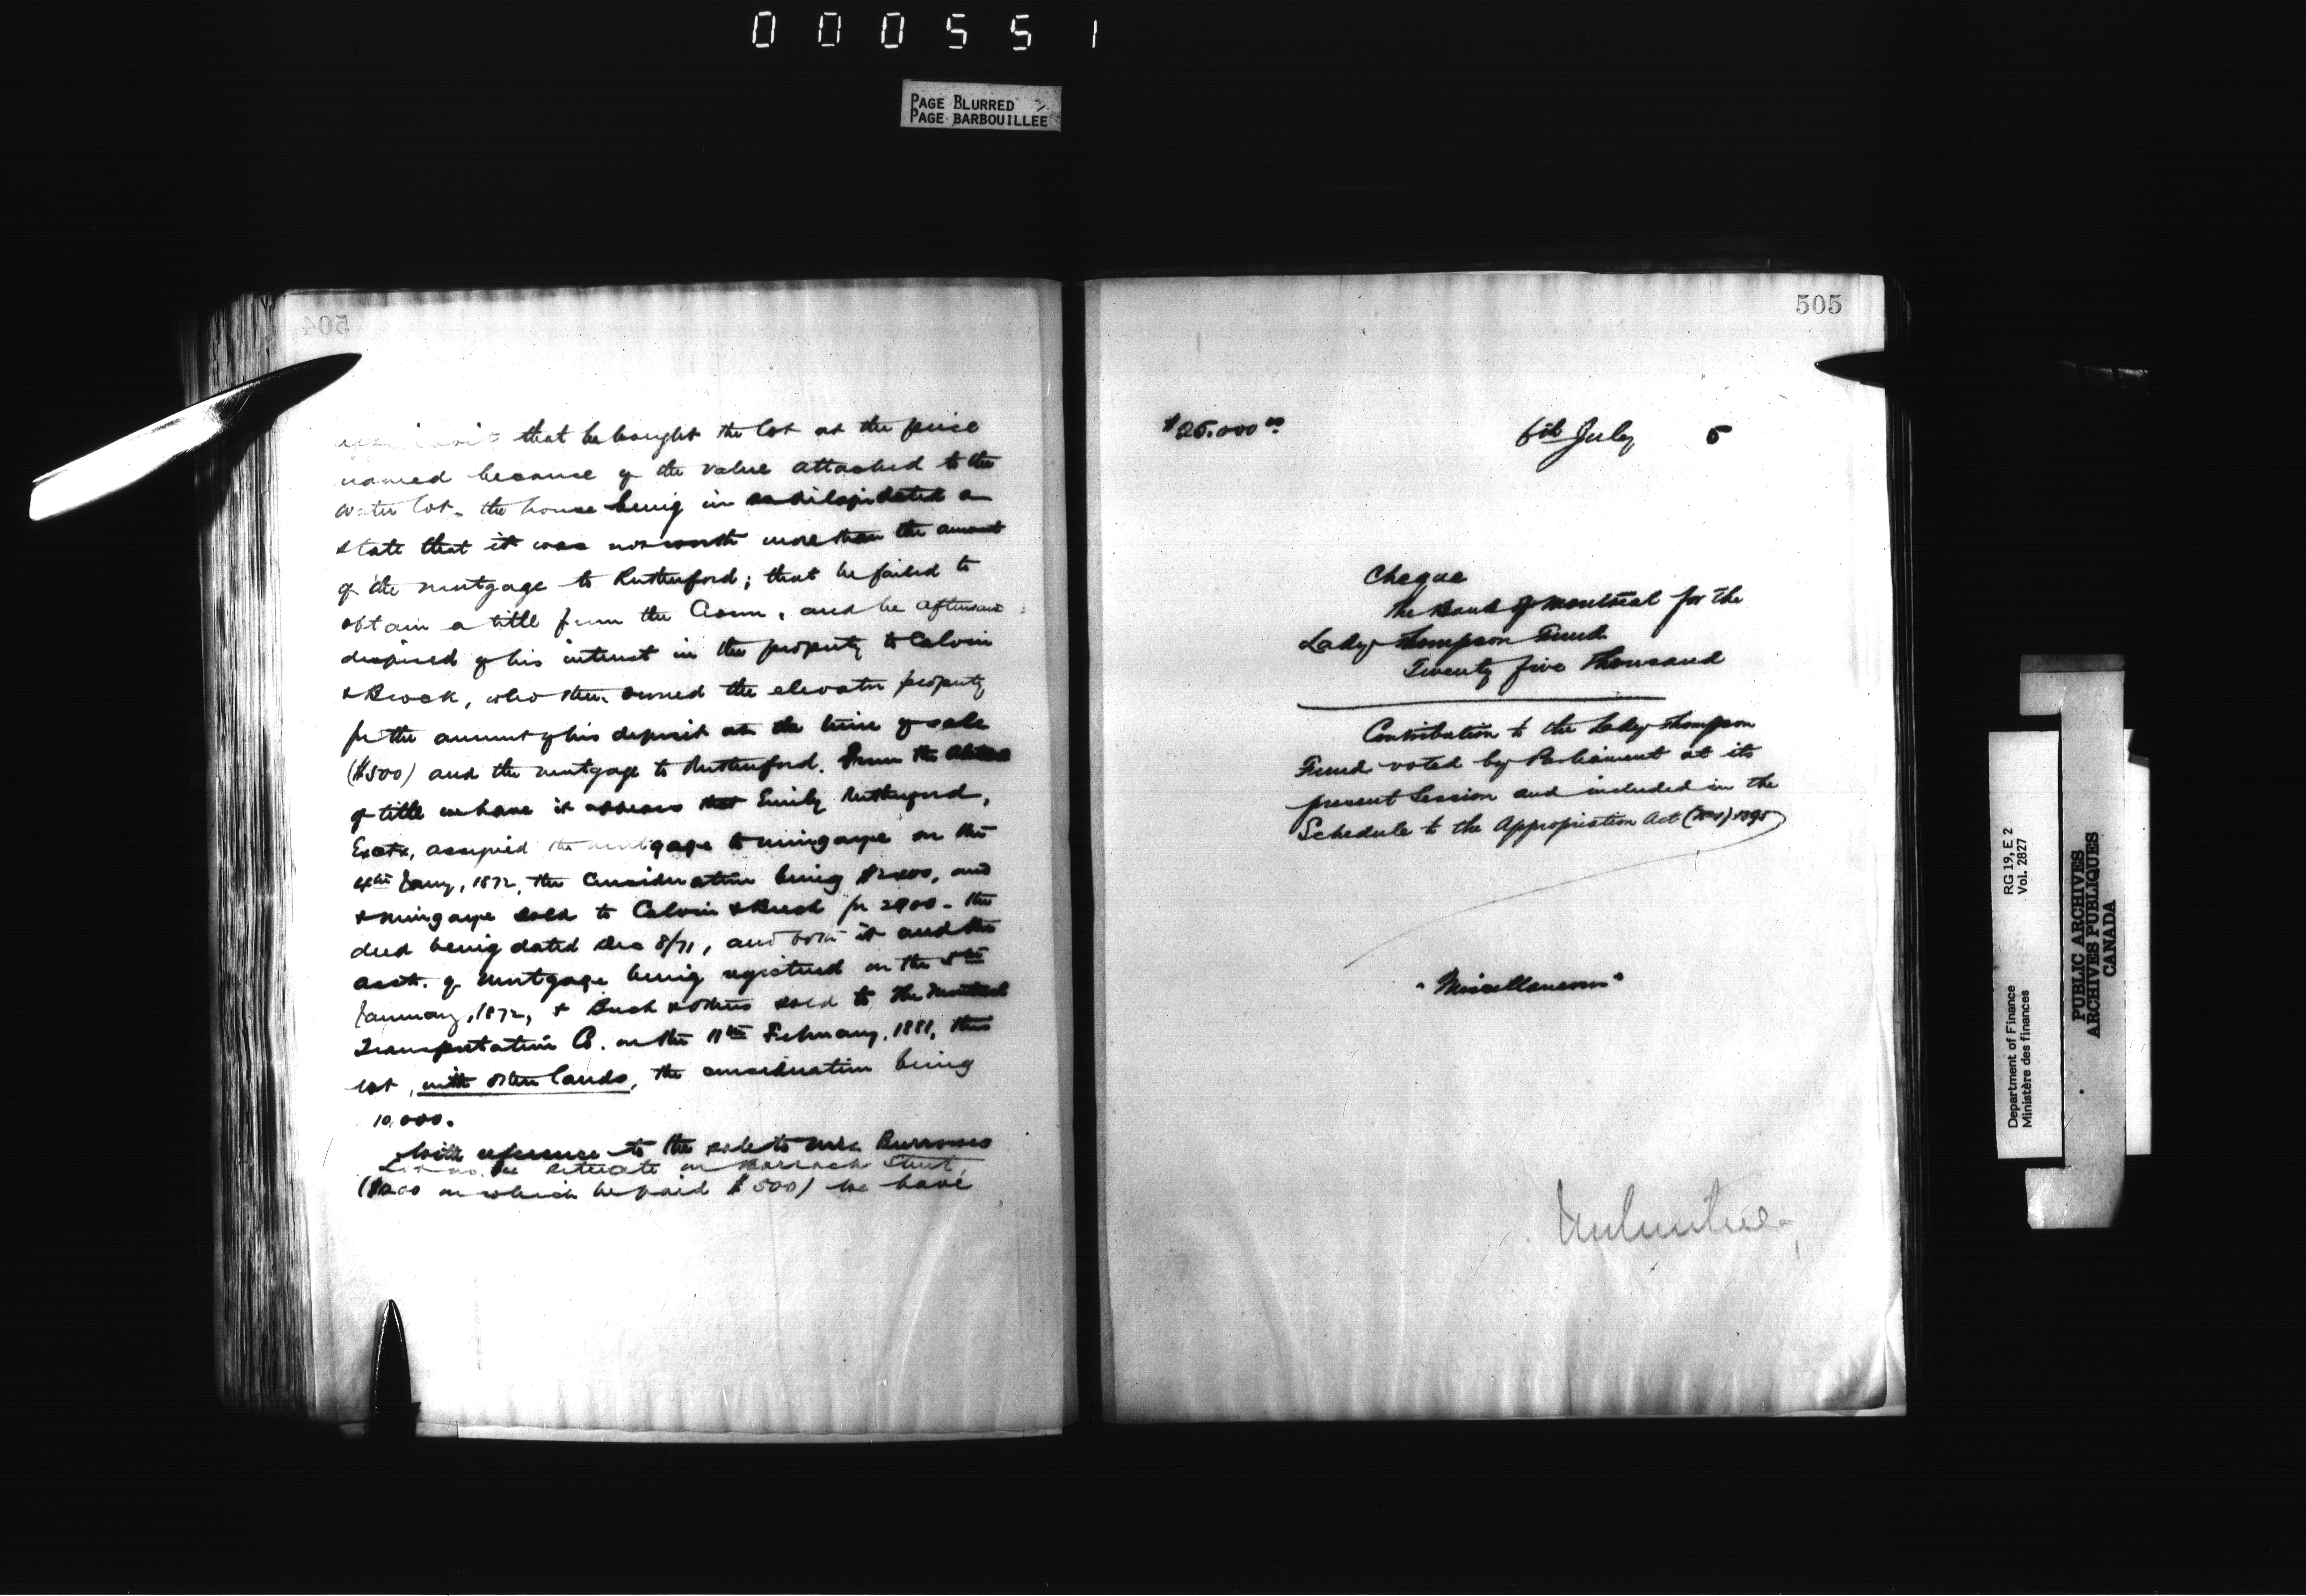 000551
PAGE BLURRED
PAGE BARBOUILLEE
504
that he bought the lot at the price
named because of the value attached to the
water lot, the house being in so dilapidated a
state that it was not worth more than the amount
of the mortgage to Rutherford; that he failed to
obtain a title from the Crown, and he afterwards
disposed of his interest in the property to Calvin
& Breck, who then owned the elevator property
for the amount of his deposit at the time of sale
($500) and the mortgage to Rutherford. From the
of title we have it appears that Emily Rutherford,
Exctx, assigned the mortgage to on the
4th Jany, 1872, the consideration being and
sold to Calvin & for - the
deed being dated Dec 8/71, and both it and the
asst. of mortgage being registered on the 5th
January, 1872, & & others sold to The Montreal
Transportation Co. on the 11th February, 1881, this
lot, with other lands, the consideration being
10,000.
With reference to the sale to Mrs Burrowes
situate on Barrack Street,
on which he paid $500) we have
505
$25.000 00
6th July 5
Cheque
The Bank of Montreal for the
Lady Thompson Fund
Twenty five Thousand
Contribution to the Lady Thompson
Fund voted by Parliament at its
present Session and included in the
Schedule to the Appropriation Act 1895
"Miscellaneous"
RG 19, E 2
Vol. 2827
Department of Finance
Ministère des finances
PUBLIC ARCHIVES
ARCHIVES PUBLIQUES
CANADA